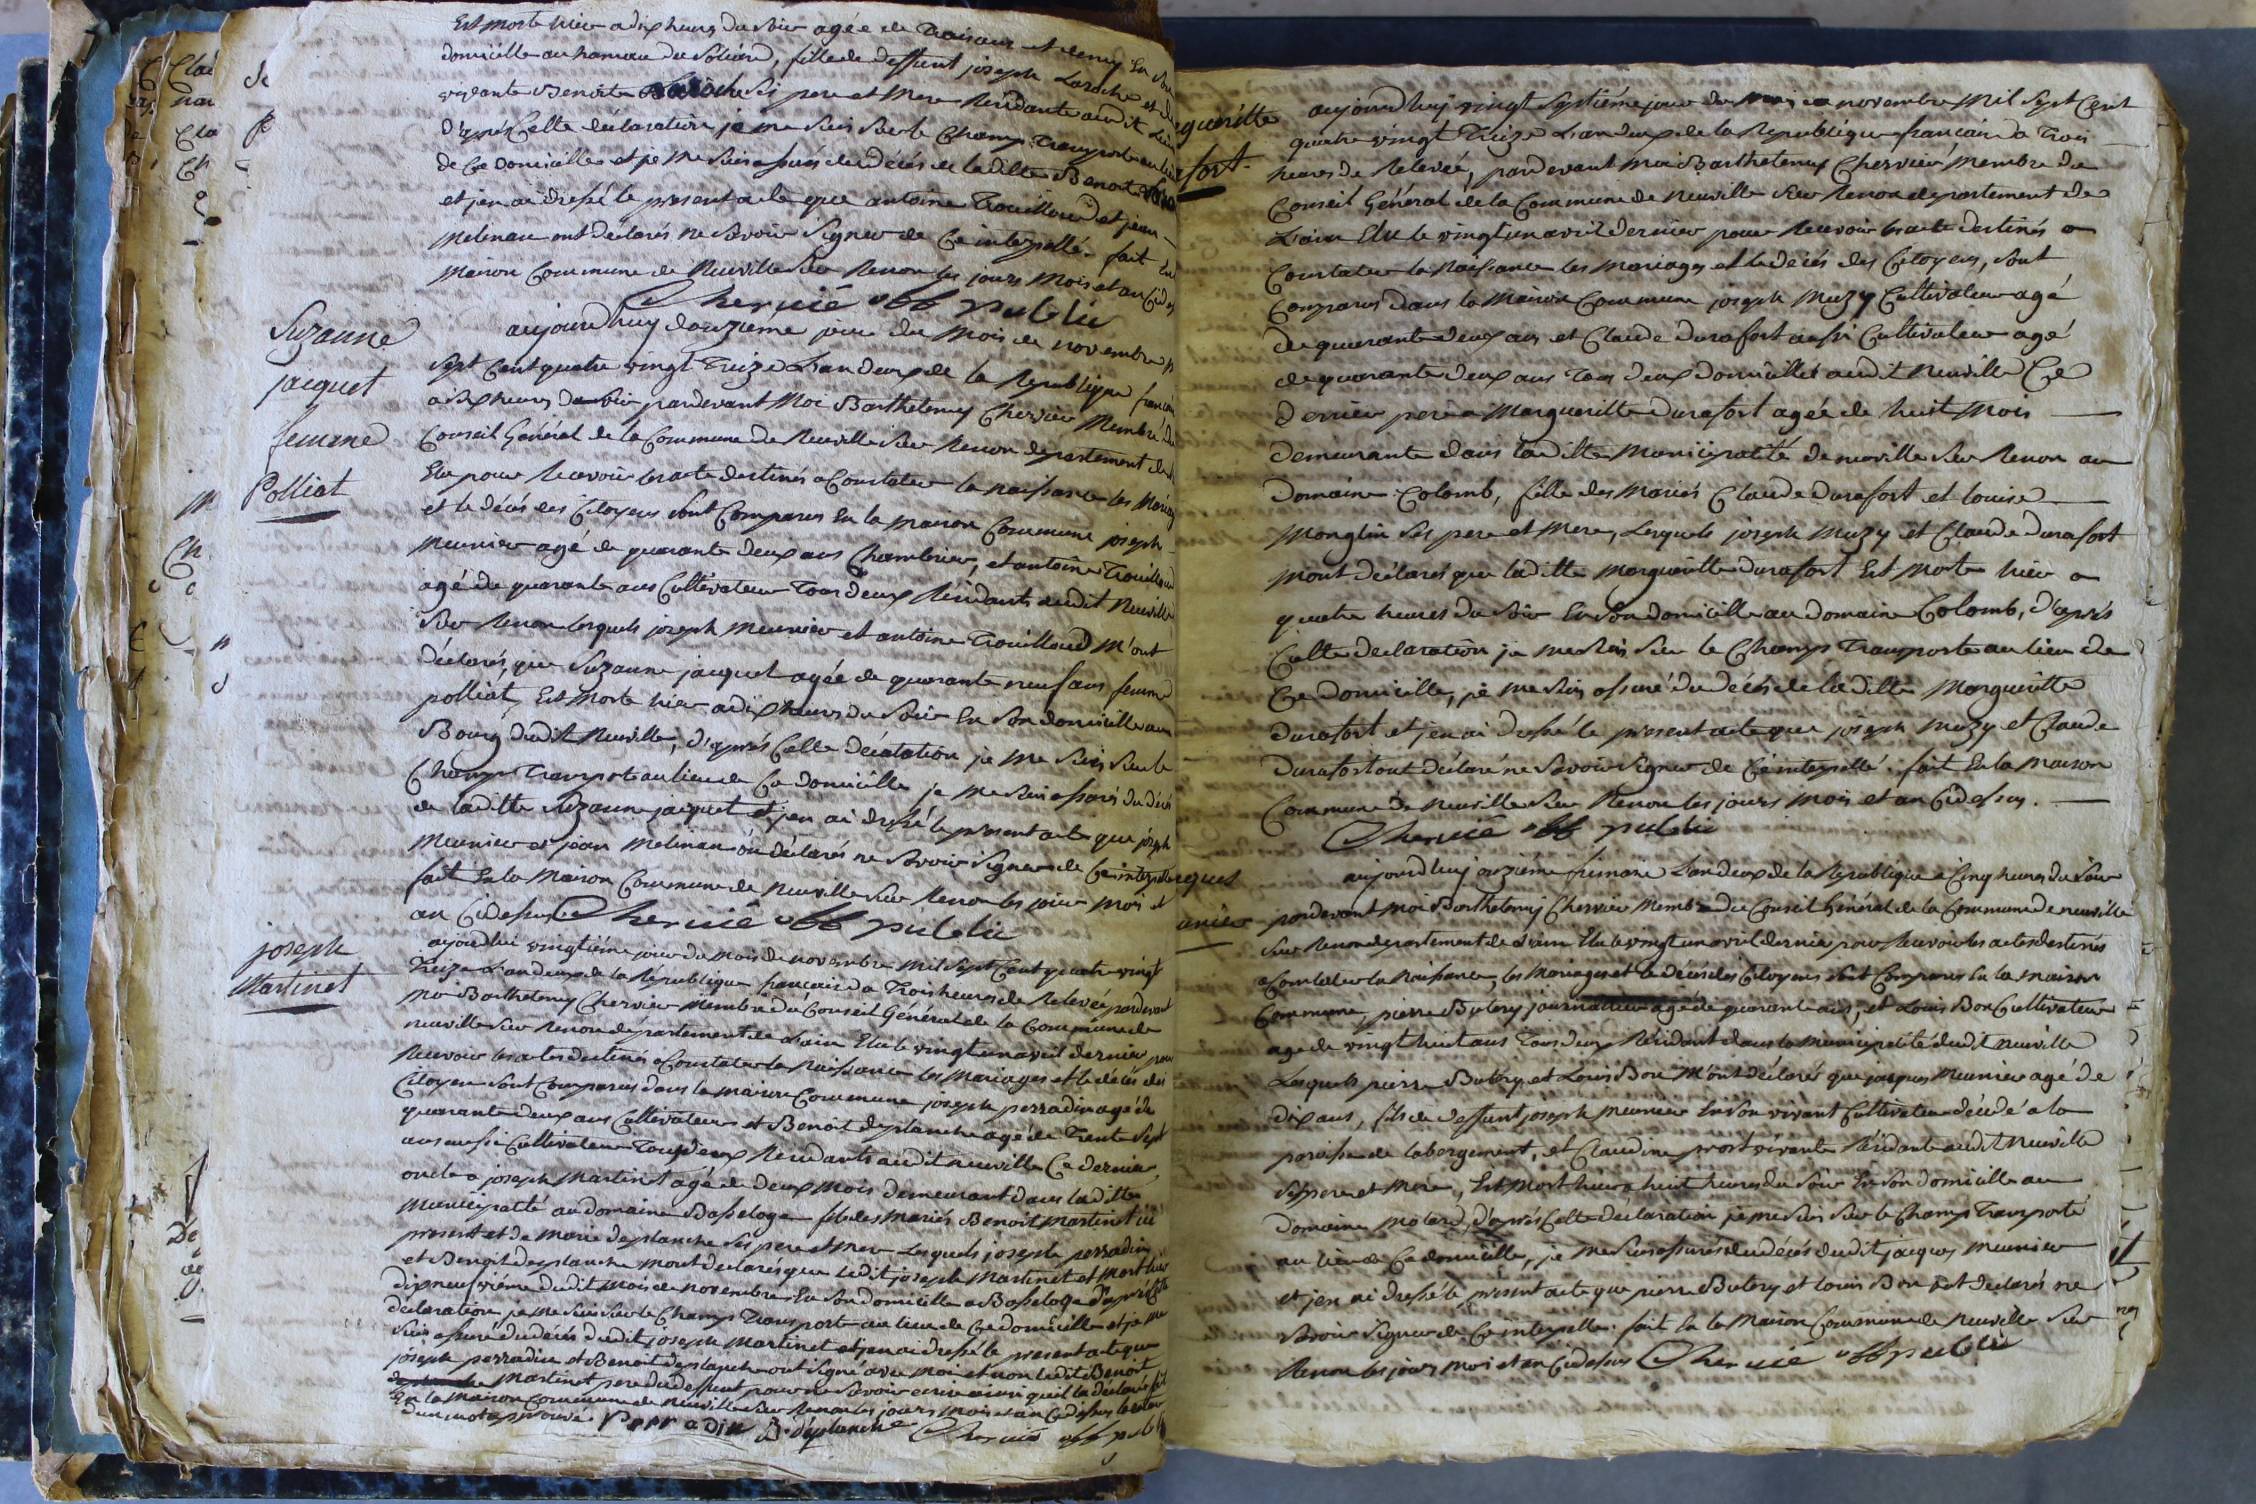 Est morte hier a dix heures du soir agée de trois ans et demy En son
domicille au hameau du Soliard, fille de deffunt joseph Laroche et de
vivante Benoite Laroche Ses pere et Mere Residante audit lieu
d'après Cette déclaration je me suis Sur le Champ Transporté au lieu
de Ce domicille et je me suis assurés du décés de laditte Benoite
et jen ai dressé le present acte que antoine Trouilloud et jean
melinau ont déclarés ne Savoir Signer de Ce interpellé. fait En
maison Commune de Neuville Sur Renon les jours Mois et an Cidessus
Chervié off public
Suzanne
jacquet
femme
Polliat
aujourdhuy douzieme jour du Mois de novembre
Sept Cent quatre vingt Treize L'an deux de la Republique francaise
a six heures du soir pardevant Moi Barthelemy Chervier Membre du
Conseil Général de la Commune de Neuville Sur Renon departement de
Elu pour Recevoir les acte destinés a Constater la naissance les Mariages
et le décés des Citoyens Sont Comparus En la maison Commune joseph
Meunier agé de quarante deux ans Chambrier, et antoine Trouilloud
agé de quarante ans Cultivateur Tous deux Résidants audit Neuville
Sur Renon lesquels joseph Meunier et antoine Trouilloud M'ont
déclarés, que Suzanne jacquet agée de quarante neuf ans femme
polliat, Est Morte hier a dix heures du Soir En Son domicille au
Bourg dudit Neuville, d'après Cette décalation je me Suis Sur le
Champ Transporté au lieu de Ce domicille je me suis assurés du décés
de laditte Suzanne jacquet et jen ai dressé le present acte que joseph
Meunier et jean Melinau on déclarés ne Savoir Signer de Ce interpellé
fait En la Maison Commune de Neuville Sur Renon les jour Mois et
an Cidessus Chervié off public
joseph
Martinet
aujourdhui vingtiéme jour du mois de novembre mil Sept Cent quatre vingt
Treize L'an deux de la République francaise a Trois heures de Relevée pardevant
Moi Barthelemy Chervier Membre du Conseil Général de la Commune de
neuville Sur Renon département de L'ain Elu le vingt un avril dernier pour
Recevoir les actes destinés a Constater la Naissance les Mariages et le décés des
Citoyens Sont Comparus dans la maison Commune joseph perradin agé de
quarante deux ans Cultivateur et Benoit deplanche agé de Trente Sept
ans aussi Cultivateur Tous deux Residants audit neuville Ce dernier
oncle a joseph Martinet agé de deux Mois demeurant dans laditte
Municipalité au domaine Basseloge fils des Mariés Benoit Martinet ici
present et de Marie deplanche Ses pere et Mere Lesquels joseph perradin
et Benoit deplanche mont declarés que ledit joseph Martinet est Mort hier
dix neufvième dudit Mois de novembre En Son domicille a Basseloge d'après Cette
declaration je me Suis Sur le Champ Transporté au lieu de Ce domicille et je me
Suis assuré du décés dudit joseph Martinet et jen ai dressé le present acte que
joseph perradin et Benoit deplanche ont Signé avec Moi et non ledit Benoit
Martinet pere du deffunt pour ne Savoir ecrire ainsi quil la déclaré fait
En la Maison Commune de neuville Sur Renon les jours Mois et an Cidessus
dun mot approuvé Perradin B. deplanche Chervié off public
guéritte
fort
aujourdhuy vingt Septiéme jour du Mois de novembre Mil Sept Cent
quatre vingt Treize L'an deux de la Republique francaise a Trois
heures de Relevée, pardevant Moi Barthelemy Chervier Membre du
Conseil Général de la Commune de Neuville Sur Renon departement de
L'ain Elu le vingt un avril dernier pour Recevoir les acte destinés a
Constater la Naissance les Mariages et le décés des Citoyens, Sont
Comparus dans la Maison Commune joseph Muzy Cultivateur agé
de quarante deux ans et Claude Durafort aussi Cultivateur agé
de quarante deux ans Tous deux domicilliés audit Neuville Ce
dernier pere a Margueritte Durafort agée de huit Mois
demeurante dans laditte Municipalité de neuville Sur Renon au
domaine Colomb, fille des Mariés Claude Durafort et louise
Monglin Ses pere et Mere, Lesquels joseph Muzy et Claude Durafort
M'ont déclarés que laditte Margueritte Durafort Est Morte hier a
quatre heures du Soir En Son domicille au domaine Colomb, d'après
Cette declaration je me Suis Sur le Champ Transporté au lieu de
Ce domicille, je me Suis assuré du décés de laditte Margueritte
Durafort et jen ai dressé le present acte que joseph Muzy et Claude
Durafort ont déclaré ne Savoir Signer de Ce interpellé. fait En la maison
Commune de Neuville Sur Renon les jours Mois et an Cidessus.
Chervié off public
ques
unier
aujourdhuy onziéme frimaire L'an deux de la Republique a Cinq heures du Soir
pardevant Moi Barthelemy Chervier Membre du Conseil Général de la Commune de neuville
Sur Renon departement de L'ain Elu le vingt un avril dernier pour Recevoir les actes destinés
a Constater la Naissance, les Mariages et le décés des Citoyens Sont Comparus En la maison
Commune, pierre Butery journallier agé de quarante ans, et Louis Bon Cultivateur
agé de vingt huit ans Tous deux Résidant dans la Municipalité dudit Neuville
Lesquels pierre Butery et Louis Bon M'ont déclarés que jacques Meunier agé de
dix ans, fils de deffunt joseph Meunier En Son vivant Cultivateur décédé a la
paroisse de labergement, et Claudine prost vivante Résidante audit Neuville
Ses pere et Mere, Est Mort hier a huit heures du Soir En Son domicille au
domaine Motard, d'après Cette declaration je me Suis Sur le Champ Transporté
au lieu de Ce domicille, je me Suis assurés du décés dudit jacques Meunier
et jen ai dressé le present acte que pierre Butery et Louis Bon ont declarés ne
Savoir Signer de Ce interpellé. fait En la Maison Commune de Neuville Sur
Renon les jours Mois et an Cidessus Chervié off public